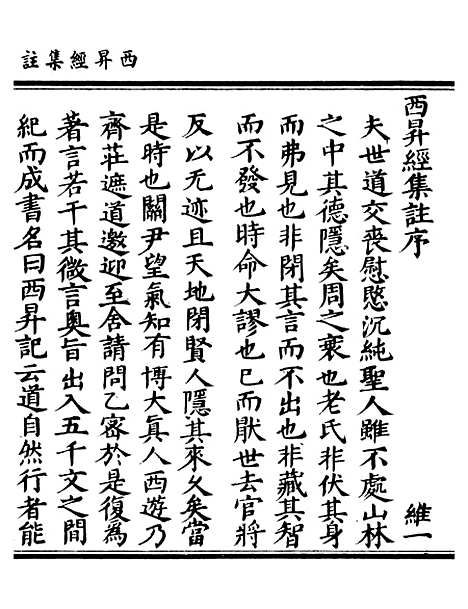 西昇經集註
西昇經集註序　維一
夫世道交喪慰愍沉純聖人雖不處山林
之中其德隱矣周之衰也老氏非伏其身
而弗見也非閉其言而不出也非藏其智
而不發也時命大謬也已而厭世去官將
反以无迹且天地閉賢人隱其來久矣當
是時也關尹望氣知有博大真人西遊乃
齊莊遮道邀迎至舍請問乙密於是復為
著言若干其微言奧旨出入五千文之間
紀而成書名曰西昇記云道自然行者能